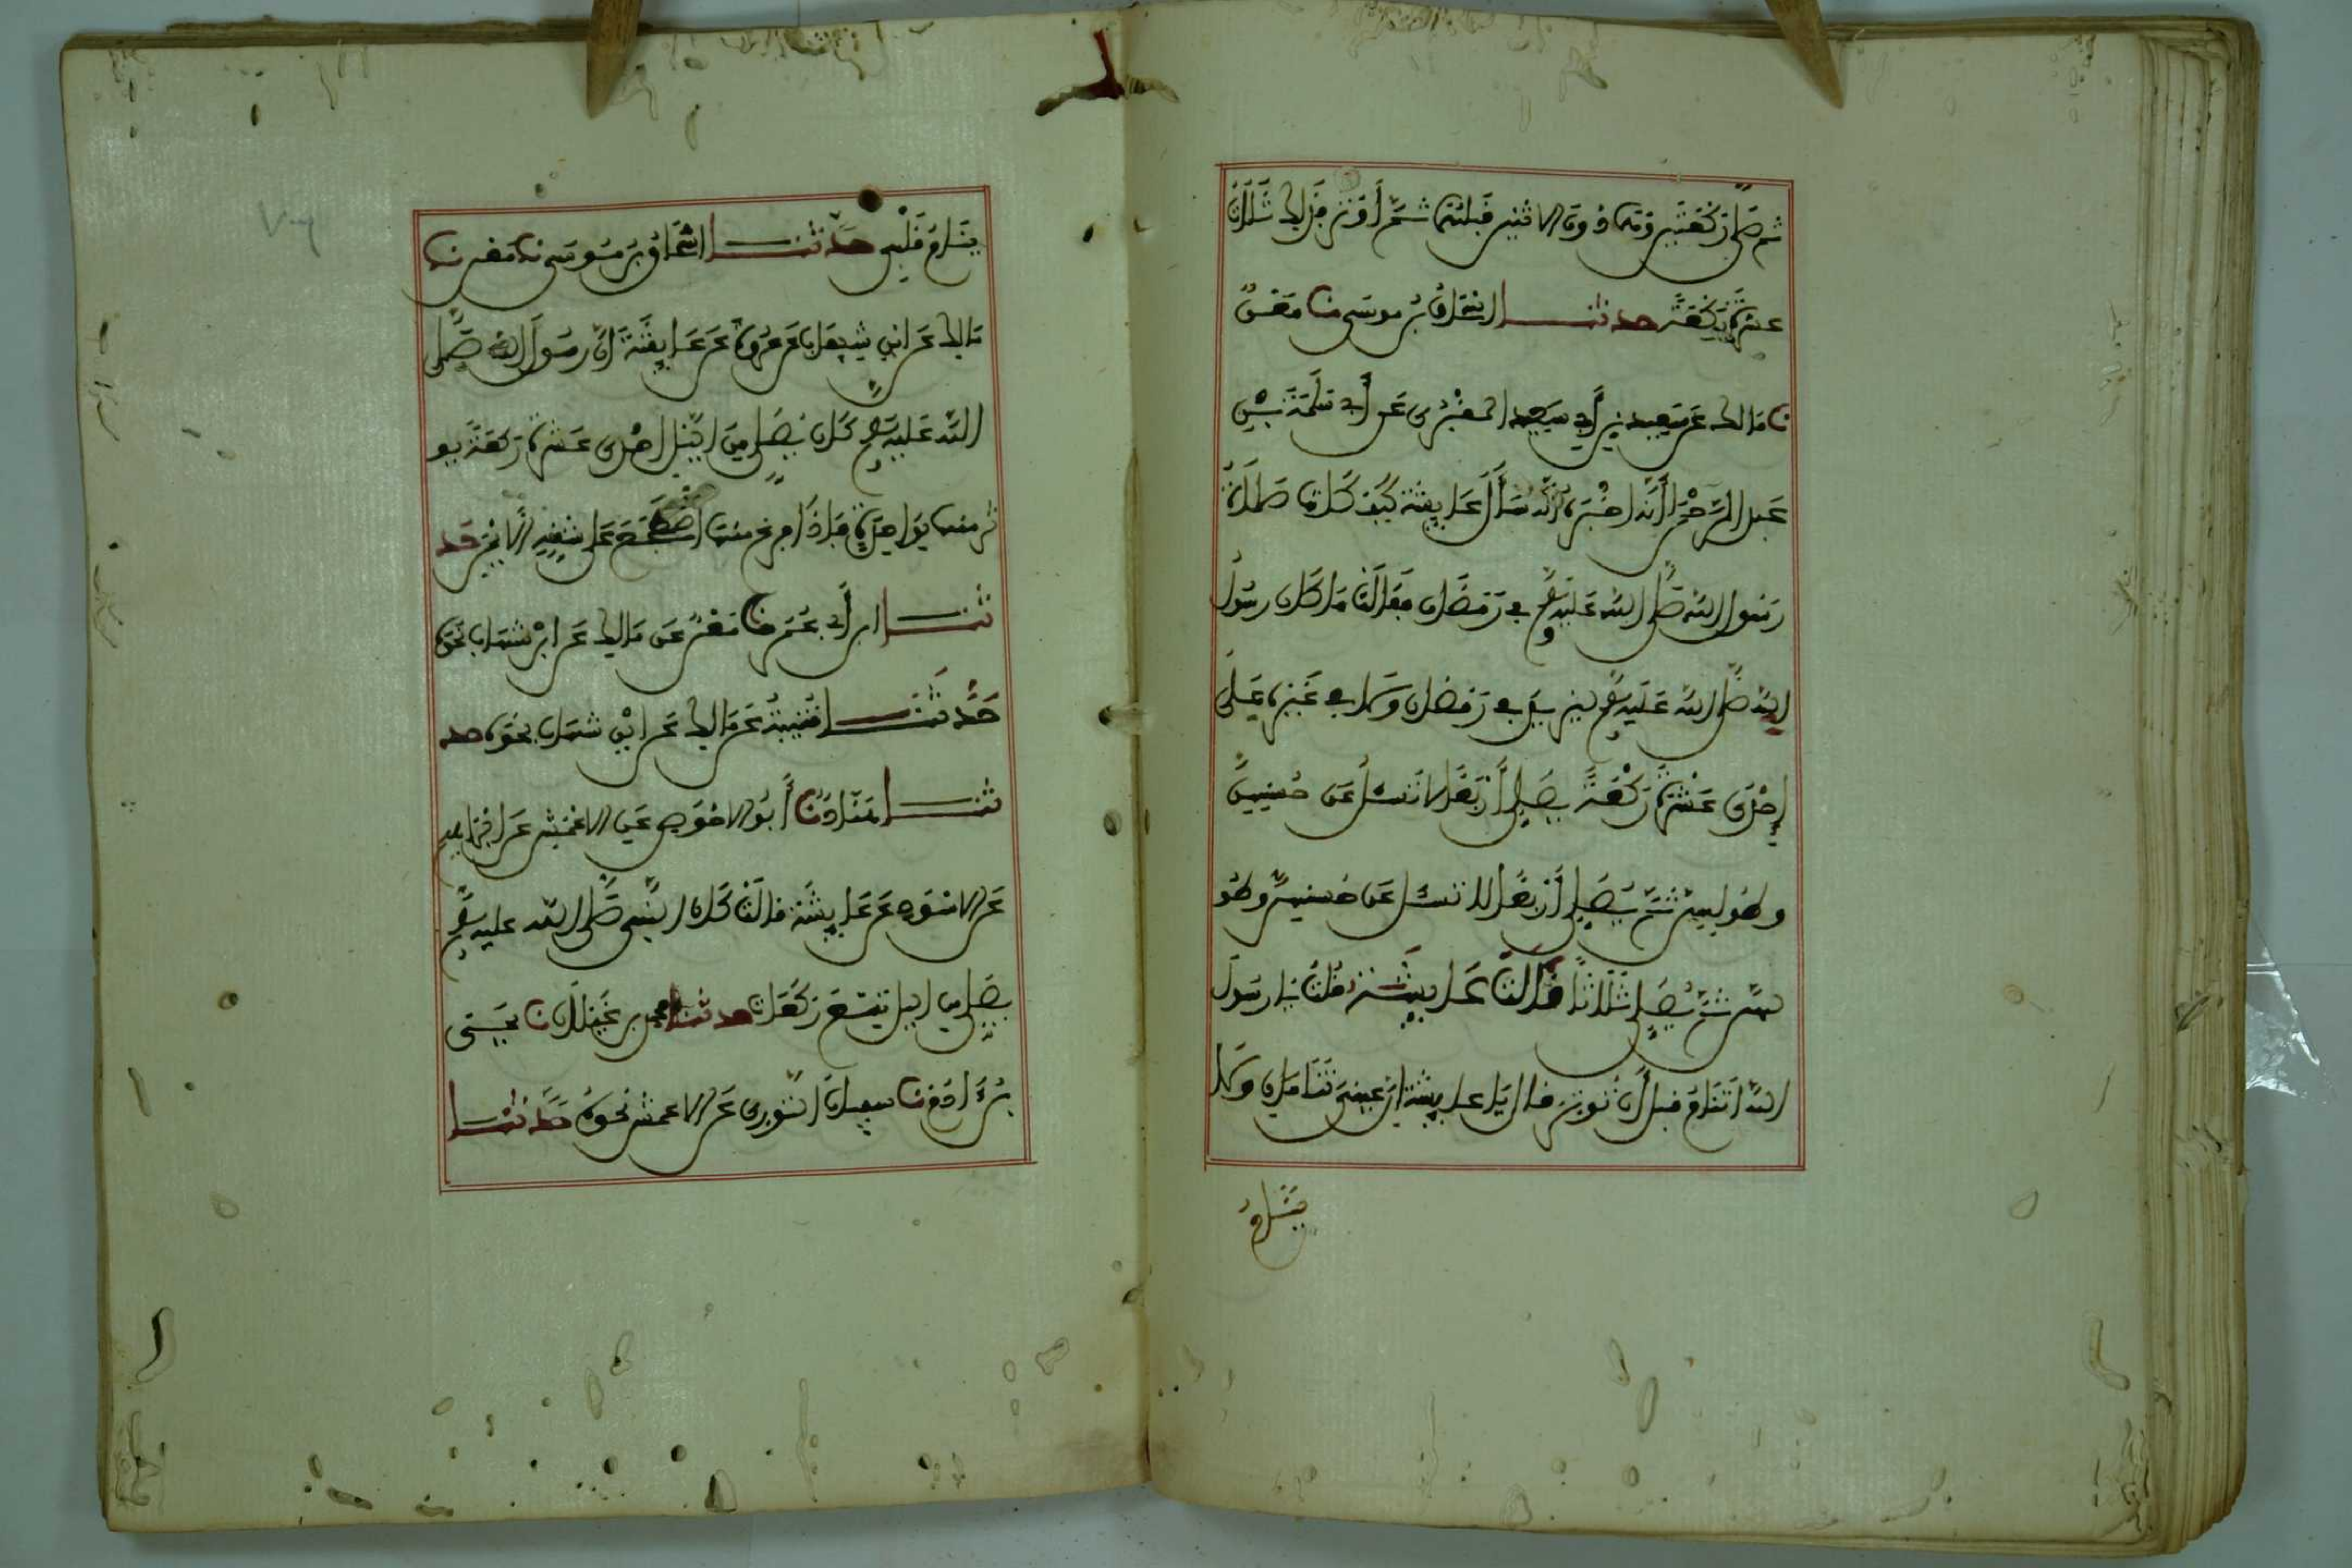 ثم صلى ركعتين وهما دون الاثنين قبلهما ثم أوتر فذلك ثلاث
عشرة ركعة حدثنا اسحاق بن موسى نا معن
نا مالك عن سعيد بن أبي سعيد المقبري عن أبي سلمة بن
عبد الرحمن أنه اخبره أنه سأل عايشة كيف كانت صلاة
رسول الله صلى الله عليه وسلم في رمضان فقالت ما كان رسول
الله صلى الله عليه وسلم ليزيد في رمضان ولا في غيره على
إحدى عشرة ركعة يصلي أربعا لا تسئل عن حسنهن
وطولهن ثم يصلي أربعا لا تسئل عن حسنهن وطو
لهن ثم يصلي ثلاثا قالت عايشة قلت يا رسول
الله أتنام قبل أن توتر قال يا عايشة إن عيني تنامان ولا
ينام
ينام قلبي حدثنا اسحاق بن موسى نا معن نا
مالك عن ابن شهاب عن عروة عن عايشة أن رسول الله صلى
الله عليه وسلم كان يصلي من الليل احدى عشرة ركعة يو
تر منها بواحدة فإذا فرغ منها اضطجع على شقه الأيمن حد
ثنا ابن أبي عمر نا معن عن مالك عن ابن شهاب نحوه
حدثنا قتيبة عن مالك عن ابن شهاب نحوه حد
ثنا هناد نا أبو الاحوص عن الاعمش عن ابراهيم
عن الاسود عن عايشة قالت كان النبي صلى الله عليه وسلم
يصلي من الليل تسع ركعات حدثنا محمود بن غيلان نا يحيى
بن ءادم نا سفيان الثوري عن الاعمش نحوه حدثنا